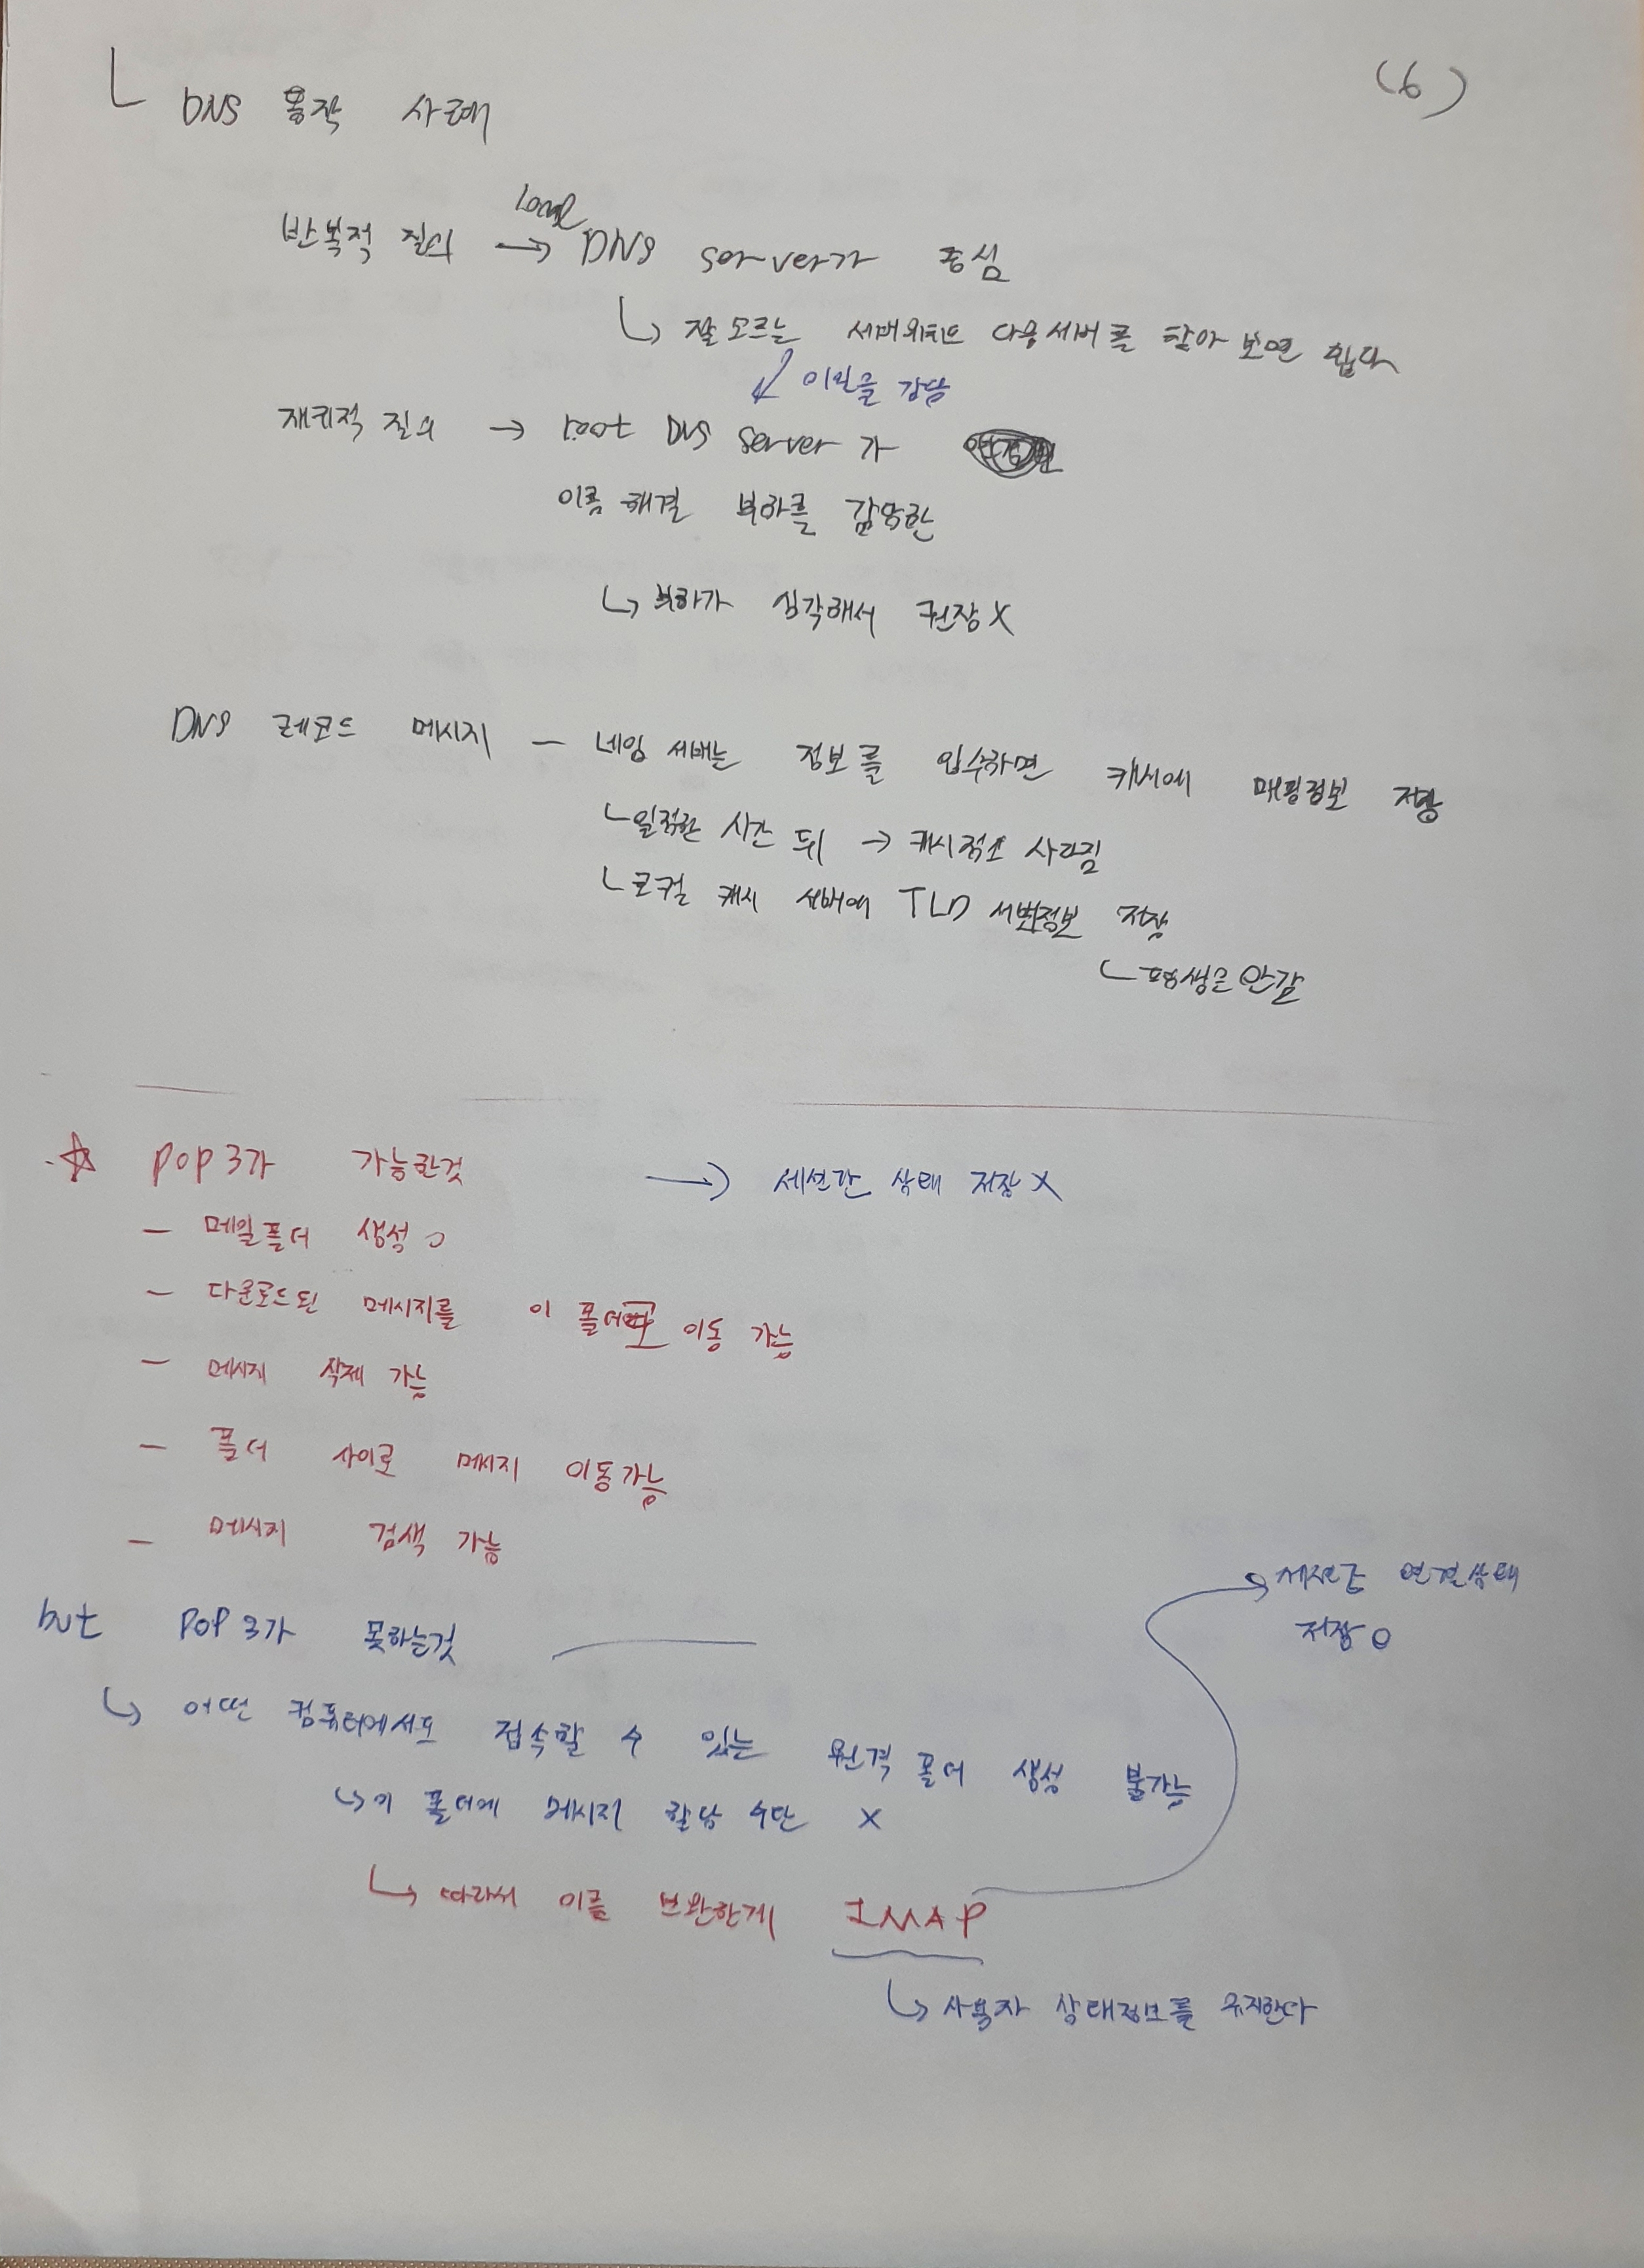 (6)
DNS 동작 사례
반복적 질의 → Local DNS server가 중심
↳ 잘 모르는 다음서버를 찾아 보면 된다
이것을
재귀적 질의 → root DNS server가
이름 해결 부하를
↳ 부하가 심각해서 권장 X
DNS 레코드 메시지 - 네임 서버는 정보를 입수하면 캐시에 매핑정보 저장
일정한 시간 뒤 → 사라짐
로컬 캐시 서버에 TLD 서버정보 저장
☆ POP3가 가능한것 → 세션간 상태 저장 X
- 메일폴더 생성 O
- 다운로드된 메시지를 이 폴더로 이동 가능
- 메시지 삭제 가능
- 폴더 사이로 메시지 이동가능
- 메시지 검색 가능
but POP3가 못하는것
↳ 어떤 컴퓨터에서도 접속할 수 있는 원격 폴더 생성 불가능
↳ 이 폴더에 메시지 할당 수단 X
↳ 따라서 이를 보완한게 IMAP
연결상태
저장 O
↳ 사용자 상태정보를 유지한다